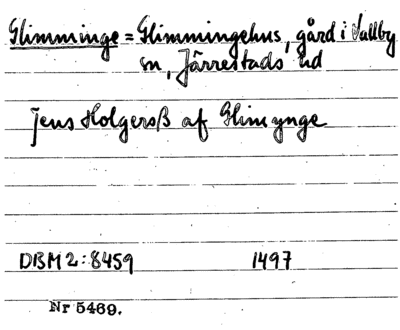 Glimminge = Glimmingehus, gård i Vallby
sn, Järrestads hd
Jens Holgersß af Glimynge
DBM2:8459 1497
Nr 5469.